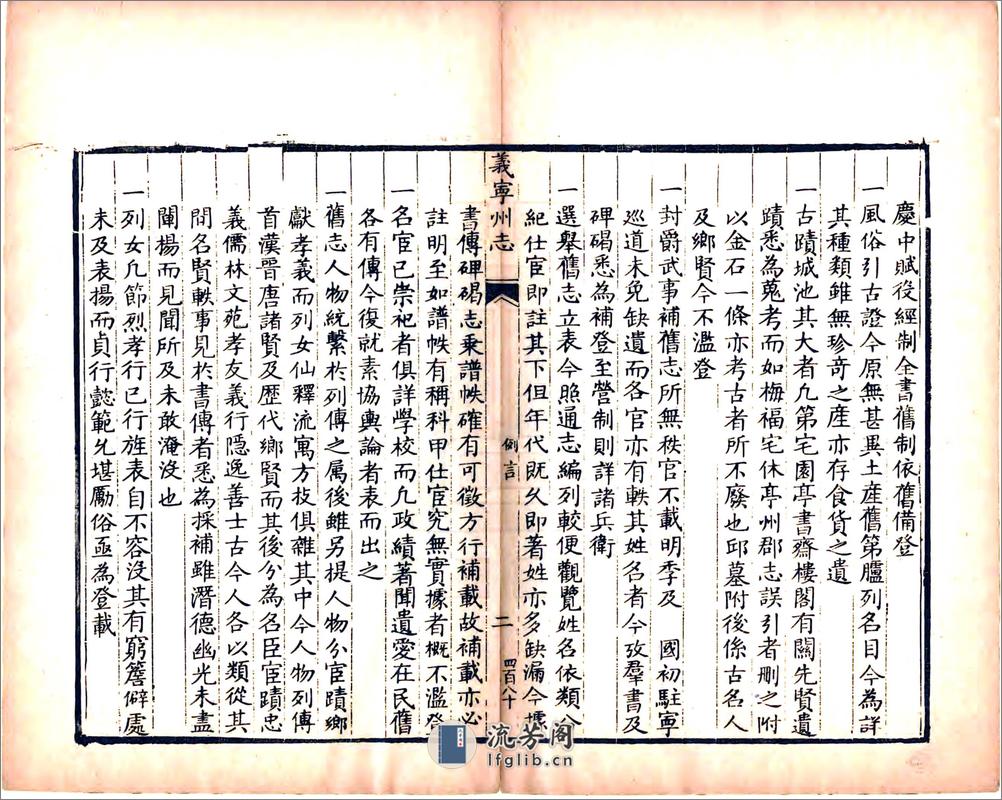 慶中賦役經制全書舊制依舊備登
一風俗引古證今原無甚異土産舊第臚列名目今為詳
其種類雖無珍奇之產亦存食貨之遺
一古蹟城池其大者凢第宅園亭書齋樓閣有關先賢遺
蹟悉為蒐考而如梅福宅休亭州郡志誤引者删之附
以金石一條亦考古者所不廢也邱墓附後係古名人
及鄉賢今不濫登
一封爵武事補舊志所無秩官不載明季及　國初駐寧
巡道未免缺遺而各官亦有軼其姓名者今攷羣書及
碑碣悉為補登至營制則詳諸兵衛
一選舉舊志立表今照通志編列較便觀覽姓名依類分
紀仕宦即註其下但年代既久即著姓亦多缺漏今據
義寧州志
例言
二
四百八十
書傳碑碣志乘譜帙確有可徵方行補載故補載亦必
註明至如譜帙有稱科甲仕宦究無實據者概不濫登
一名宦已崇祀者俱詳學校而凢政績著聞遺愛在民舊
各有傳今復就素協輿論者表而出之
一舊志人物統繫於列傳之属後雖另提人物分宦蹟鄉
獻孝義而列女仙釋流寓方技俱雜其中今人物列傳
首漢晉唐諸賢及歷代鄉賢而其後分為名臣宦蹟忠
義儒林文苑孝友義行隱逸善士古今人各以類從其
間名賢軼事見於書傳者悉為採補雖潛德幽光未盡
闡揚而見聞所及未敢淹沒也
一列女凢節烈孝行已行旌表自不容沒其有窮簷僻處
未及表揚而貞行懿範允堪勵俗亟為登載
流芳阁
lfglib.cn